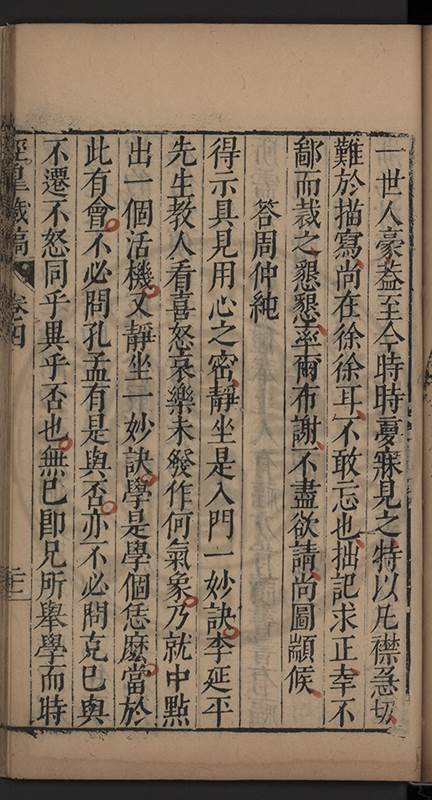 一世人豪葢至今時時夢寐見之特以凡襟急切
難於描寫尚在徐徐耳不敢忘也拙記求正幸不
鄙而裁之懇懇率爾布謝不盡欲請尚圖顓候
答周仲純
得示具見用心之密靜坐是入門一妙訣李延平
先生教人看喜怒哀樂未發作何氣象乃就中點
出一個活機又靜坐一妙訣學是學個恁麽當於
此有會不必問孔孟有是與否亦不必問克已與
不遷不怒同乎異乎否也無已即兄所舉學而時
涇皐藏稿 卷四